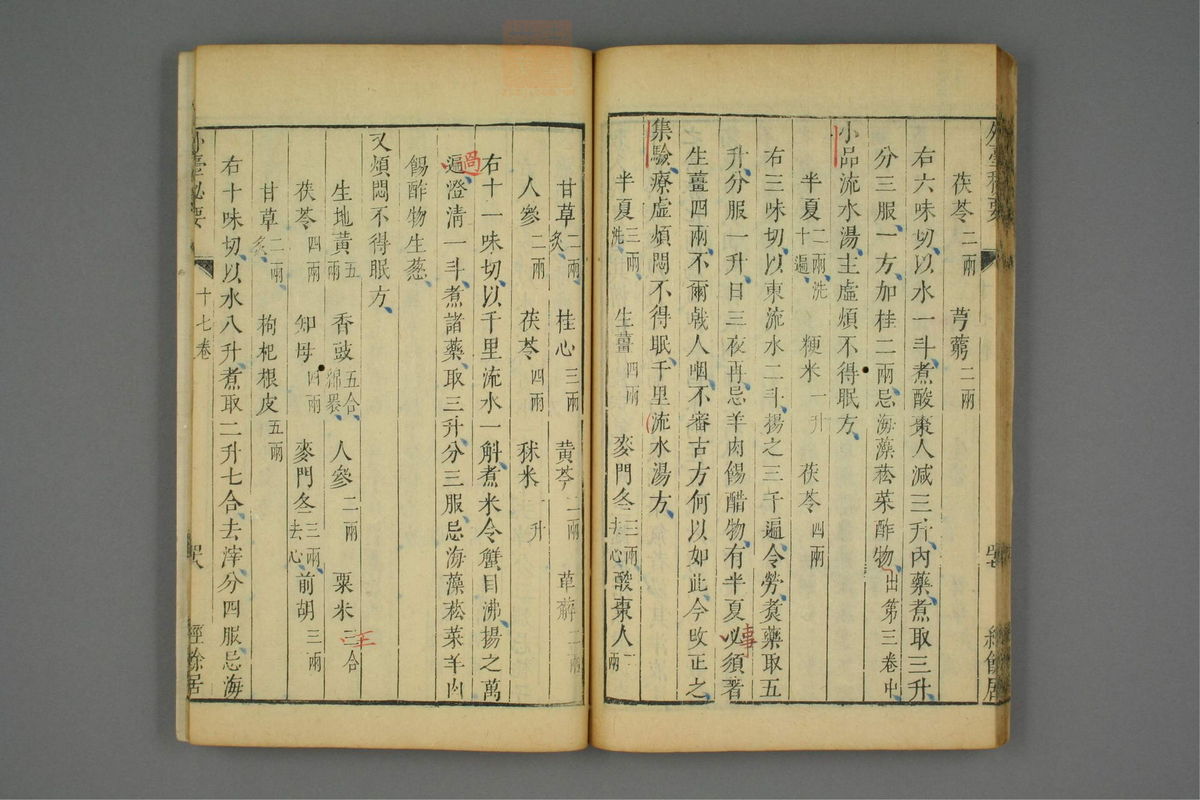 茯苓二兩 芎藭二兩
右六味切以水一斗煮酸棗人減三升內藥煮取三升
分三服一方加桂二兩忌海藻菘菜酢物出第三卷中
小品流水湯主虛煩不得眠方
半夏二兩洗十遍 粳米一升 茯苓四兩
右三味切以東流水二斗揚之三千遍令勞煑藥取五
升分服一升日三夜再忌羊肉餳醋物有半夏必須著
事
生薑四兩不爾戟人咽不審古方何以如此今改正之
集驗療虛煩悶不得眠千里流水湯方
半夏三兩洗 生薑四兩 麥門冬三兩去心 酸棗人二兩
甘草二兩炙 桂心三兩 黃芩二兩 萆薢二兩
人參二兩 茯苓四兩 秫米一升
右十一味切以千里流水一斛煮米令蟹目沸揚之萬
過
遍澄清一斗煮諸藥取三升分三服忌海藻菘菜羊肉
餳酢物生葱
又煩悶不得眠方
生地黃五兩 香豉五合綿裹 人參二兩 粟米三合
茯苓四兩 知母四兩 麥門冬三兩去心 前胡三兩
甘草二兩炙 枸杞根皮五兩
右十味切以水八升煮取二升七合去滓分四服忌海
外臺祕要 十七卷 經餘居